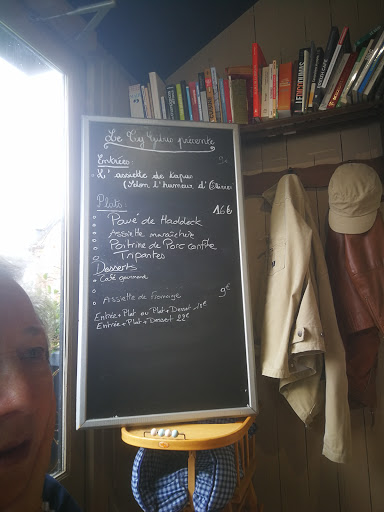 Le Ty Gibus présente
Entrées : 9€
L' assiette de tapas
(selon l'humeur d'Olivier
Plats : 16€
Pavé de Haddock
Assiette maraîchère
Poitrine de Porc confite
Tripantes
Desserts
Café gourmand
Assiette de fromage 9€
Entrée + Plat ou Plat + Dessert 18€
Entrée + Plat + Dessert 22€